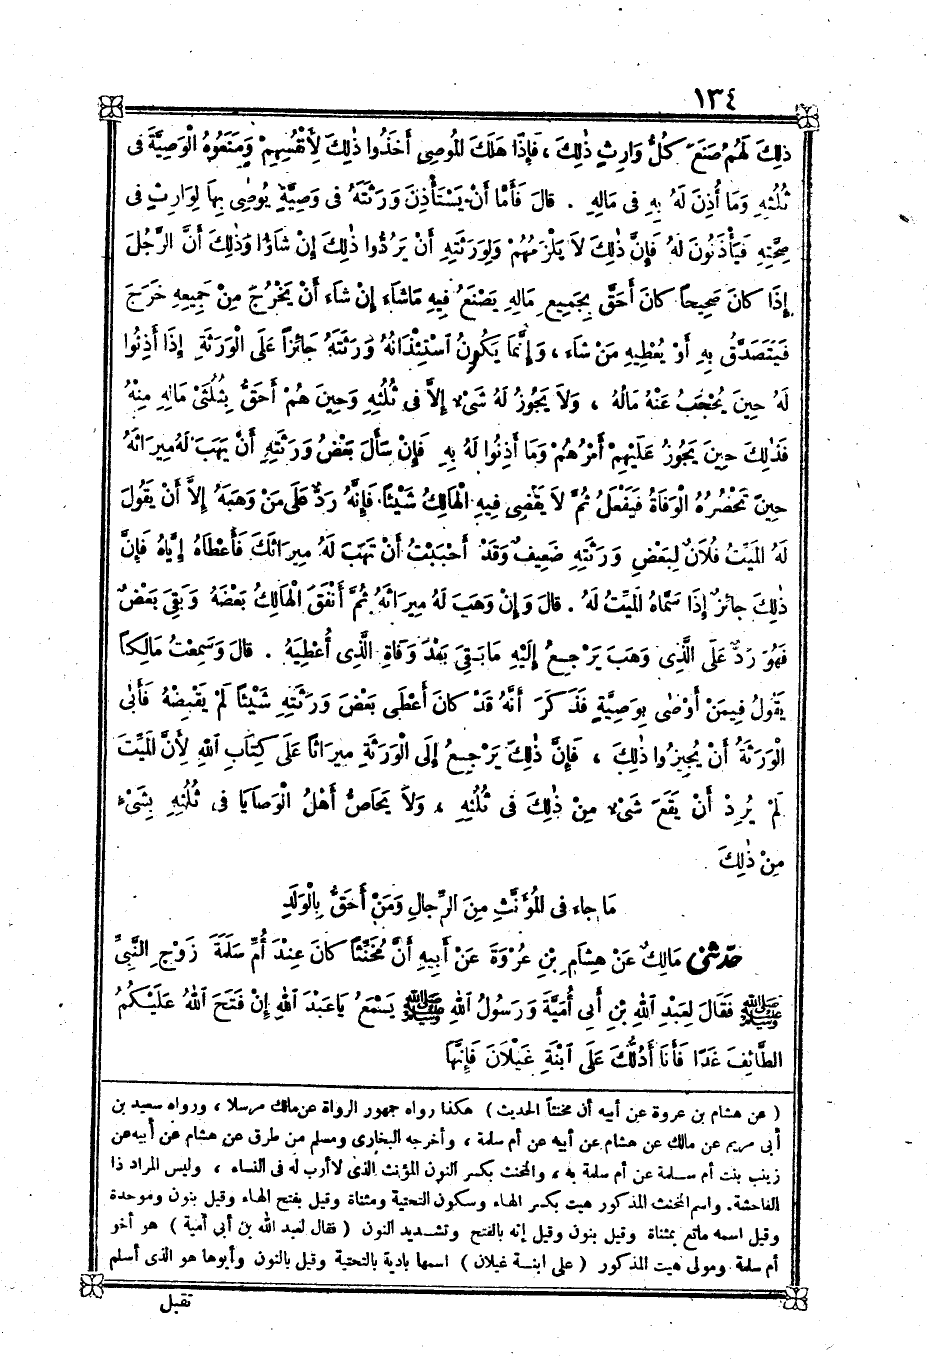 ١٣٤
ذٰلِكَ لَهُمْ صَنَعَ كُلُّ وَارِثٍ ذٰلِكَ ، فَإِذَا هَلَكَ الْمُوصِي أَخَذُوا ذٰلِكَ لِأَنْفُسِهِمْ وَمَنَعُوهُ الْوَصِيَّةَ فِى
ثُلُثِهِ وَمَا أُذِنَ لَهُ بِهِ فِى مَالِهِ . قَالَ فَأَمَّا أَنْ يَسْتَأْذِنَ وَرَثَتَهُ فِى وَصِيَّةٍ يُوصِى بِهَا لِوَارِثٍ فِى
صِحَّتِهِ فَيَأْذَنُونَ لَهُ فَإِنَّ ذٰلِكَ لَا يَلْزَمُهُمْ وَلِوَرَثَتِهِ أَنْ يَرُدُّوا ذٰلِكَ إِنْ شَاؤُا وَذٰلِكَ أَنَّ الرَّجُلَ
إِذَا كَانَ صَحِيحاً كَانَ أَحَقَّ بِجَمِيعِ مَالِهِ يَصْنَعُ فِيهِ مَاشَاء إِنْ شَاء أَنْ يَخْرُجَ مِنْ جَمِيعِهِ خَرَجَ
فَيَتَصَدَّقُ بِهِ أَوْ يُعْطِيهِ مَنْ شَاء ، وَإِنَّمَا يَكُونُ اسْتِئْذَانُهُ وَرَثَتَهُ جَائِزاً عَلَى الْوَرَثَةِ إِذَا أَذِنُوا
لَهُ حِينَ يُحْجَبُ عَنْهُ مَالُهُ ، وَلَا يَجُوزُ لَهُ شَىْء إِلاَّ فِى ثُلُثِهِ وَحِينَ هُمْ أَحَقُّ بِثُلُثَىْ مَالِهِ مِنْهُ
فَذٰلِكَ حِينَ يَجُوزُ عَلَيْهِمْ أَمْرُهُمْ وَمَا أَذِنُوا لَهُ بِهِ فَإِنْ سَأَلَ بَعْضُ وَرَثَتِهِ أَنْ يَهَبَ لَهُ مِيرَاثَهُ
حِينَ تَحْضُرُهُ الْوَفَاةُ فَيَفْعَلُ ثُمَّ لَا يَقْضِى فِيهِ الْهَالِكُ شَيْئاً فَإِنَّهُ رَدٌّ عَلَى مَنْ وَهَبَهُ إِلاَّ أَنْ يَقُولَ
لَهُ الْمَيِّتُ فُلاَنٌ لِبَعْضِ وَرَثَتِهِ ضَعِيفٌ وَقَدْ أَحْبَبْتُ أَنْ تَهَبَ لَهُ مِيرَاثَكَ فَأَعْطَاهُ إِيَّاهُ فَإِنَّ
ذٰلِكَ جَائِزٌ إِذَا سَمَّاهُ الْمَيِّتُ لَهُ . قَالَ وَإِنْ وَهَبَ لَهُ مِيرَاثَهُ ثُمَّ أَنْفَقَ الْهَالِكُ بَعْضَهُ وَبَقِىَ بَعْضٌ
فَهُوَ رَدٌّ عَلَى الَّذِى وَهَبَ يَرْجِعُ إِلَيْهِ مَا بَقِىَ بَعْدَ وَفَاةِ الَّذِى أُعْطِيَهُ . قَالَ وَسَمِعْتُ مَالِكاً
يَقُولُ فِيمَنْ أَوْصٰى بِوَصِيَّةٍ فَذَكَرَ أَنَّهُ قَدْ كَانَ أَعْطَى بَعْضَ وَرَثَتِهِ شَيْئاً لَمْ يَقْبِضْهُ فَأَبَى
الْوَرَثَةُ أَنْ يُجِيزُوا ذٰلِكَ ، فَإِنَّ ذٰلِكَ يَرْجِعُ إِلَى الْوَرَثَةِ مِيرَاثاً عَلَى كِتَابِ اللهِ لِأَنَّ الْمَيِّتَ
لَمْ يُرِدْ أَنْ يَقَعَ شَىْء مِنْ ذٰلِكَ فِى ثُلُثِهِ ، وَلَا يُحَاصُّ أَهْلُ الْوَصَايَا فِى ثُلُثِهِ بِشَىْءٍ
مِنْ ذٰلِكَ
مَا جاء فى الْمُؤَنَّثِ مِنَ الرِّجَالِ وَمَنْ أَحَقُّ بِالْوَلَدِ
حَدّثنى مَالِكٌ عَنْ هِشَامِ بْنِ عُرْوَةَ عَنْ أَبِيهِ أَنَّ مُخَنَّثاً كَانَ عِنْدَ أُمِّ سَلَمَةَ زَوْجِ النَّبِىِّ
ﷺ فَقَالَ لِعَبْدِ اللهِ بْنِ أَبِى أُمَيَّةَ وَرَسُولُ اللهِ ﷺ يَسْمَعُ يَاعَبْدَ اللهِ إِنْ فَتَحَ اللهُ عَلَيْكُمُ
الطَّائِفَ غَدًا فَأَنَا أَدُلُّكَ عَلَى ابْنَةِ غَيْلَانَ فَإِنَّهَا
( عن هشام بن عروة عن أبيه أن مخنثاً الحديث ) هكذا رواه جمهور الرواة عن مالك مرسلا ، ورواه سعيد بن
أبى مريم عن مالك عن هشام عن أبيه عن أم سلمة ، وأخرجه البخارى ومسلم من طرق عن هشام عن أبيه عن
زينب بنت أم سلمة عن أم سلمة به ، والمخنث بكسر النون المؤنث الذى لا أرب له فى النساء ، وليس المراد ذا
الفاحشة. واسم المخنث المذكور هيت بكسر الهاء وسكون التحتية ومثناة وقيل بفتح الهاء وقيل بنون وموحدة
وقيل اسمه ماتع بمثناة وقيل بنون وقيل إنه بالفتح وتشديد النون ( فقال لعبد الله بن أبى أمية ) هو أخو
أم سلمة ومولى هيت المذكور ( على ابنة غيلان ) اسمها بادية بالتحتية وقيل بالنون وأبوها هو الذى أسلم
تقبل